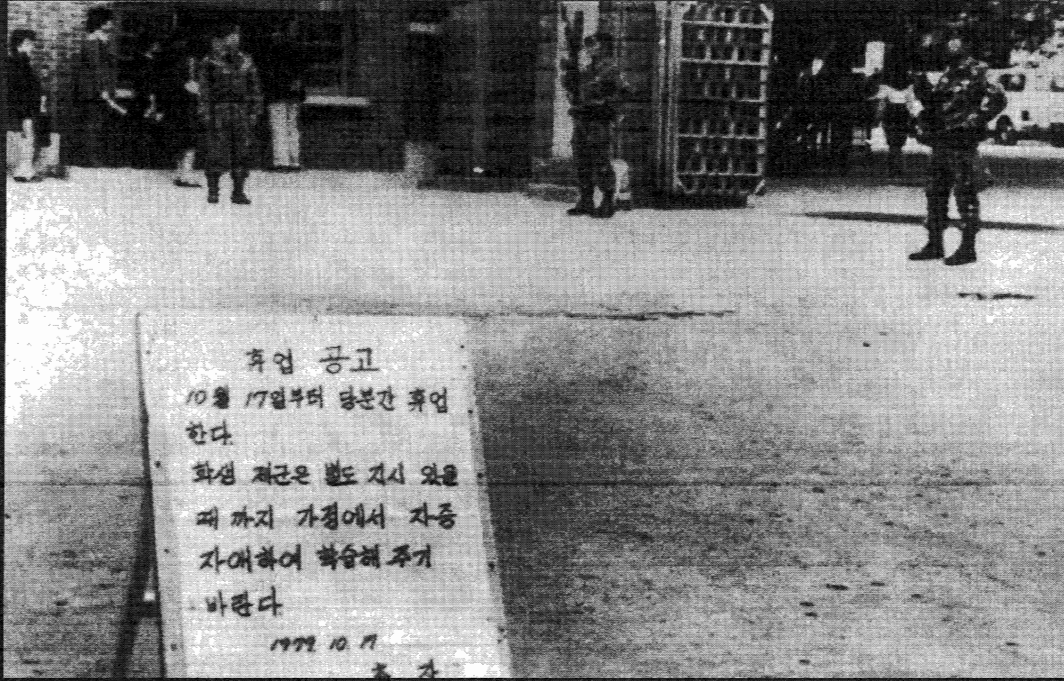 휴업 공고
10월 17일부터 당분간 휴업
한다.
학생 제군은 별도 지시 있을
때 까지 가정에서 자중
자애하여 학습해 주기
바란다
1979. 10. 17
총 장